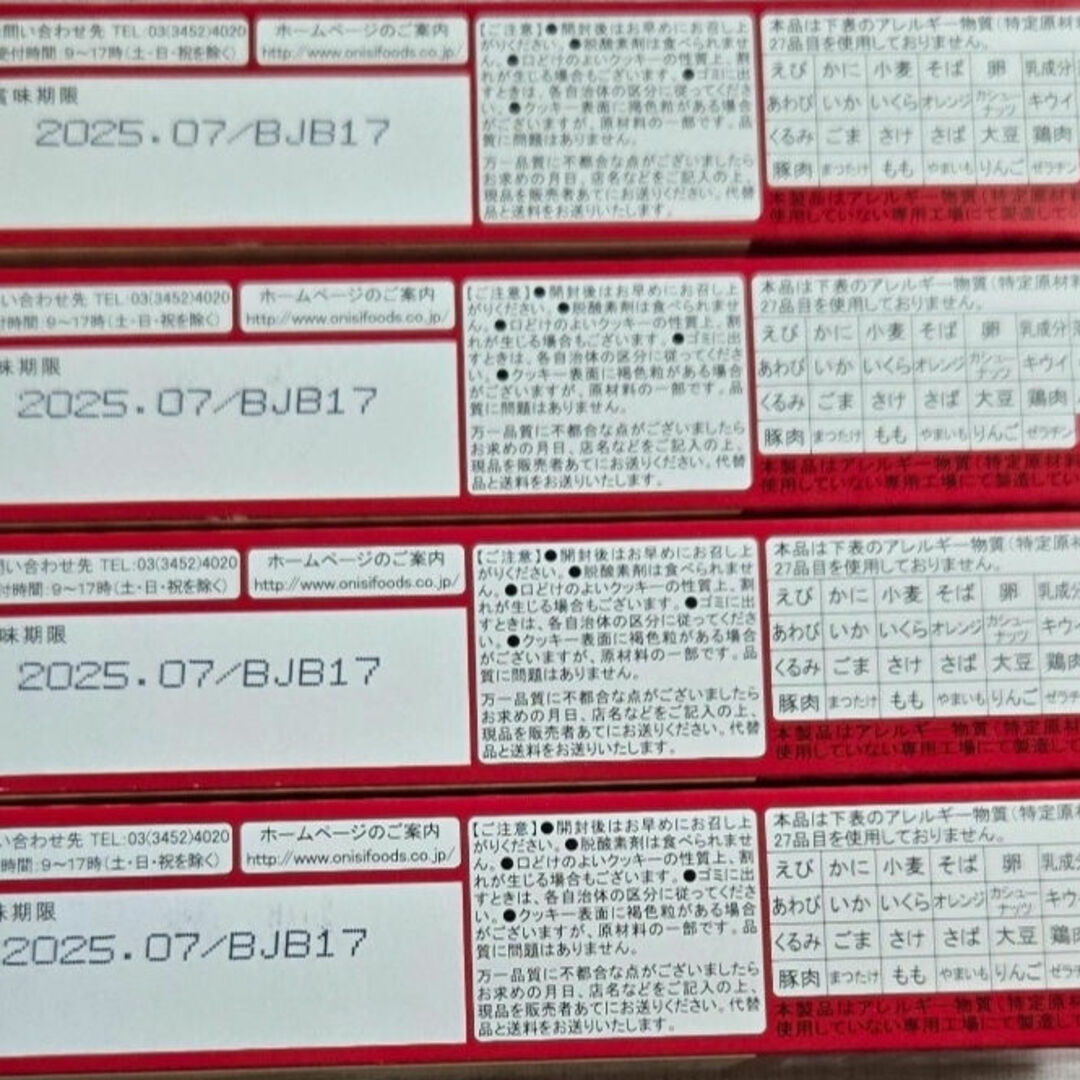 問い合わせ先 TEL 03(3452)4020
受付時間:9〜17時(土・日・祝を除く)
ホームページのご案内
http://www.onisifoods.co.jp/
賞味期限
2025.07/BJB17
【ご注意】●開封後はお早めにお召し上
がりください。●脱酸素剤は食べられませ
ん。●口どけのよいクッキーの性質上、割
れが生じる場合もございます。●ゴミに出
すときは、各自治体の区分に従ってくださ
い。●クッキー表面に褐色粒がある場合
がございますが、原材料の一部です。品
質に問題はありません。
万一品質に不都合な点がございましたら
お求めの月日、店名などをご記入の上、
現品を販売者あてにお送りください。代替
品と送料をお送りいたします。
本品は下表のアレルギー物質(特定原材
27品目を使用しておりません。
えび かに 小麦 そば 卵 乳成分
あわび いか いくら オレンジ カシューナッツ キウイ
くるみ ごま さけ さば 大豆 鶏肉
豚肉 まつたけ もも やまいも りんご ゼラチン
本製品はアレルギー物質(特定原材
使用していない専用工場にて製造して
い合わせ先 TEL:03(3452)4020
付時間:9〜17時(土・日・祝を除く)
ホームページのご案内
http://www.onisifoods.co.jp/
味期限
2025.07/BJB17
【ご注意】●開封後はお早めにお召し上
がりください。●脱酸素剤は食べられませ
ん。●口どけのよいクッキーの性質上、割
れが生じる場合もございます。●ゴミに出
すときは、各自治体の区分に従ってくださ
い。●クッキー表面に褐色粒がある場合
がございますが、原材料の一部です。品
質に問題はありません。
万一品質に不都合な点がございましたら
お求めの月日、店名などをご記入の上、
現品を販売者あてにお送りください。代替
品と送料をお送りいたします。
本品は下表のアレルギー物質(特定原材料
27品目を使用しておりません。
えび かに 小麦 そば 卵 乳成分
あわび いか いくら オレンジ カシューナッツ キウイ
くるみ ごま さけ さば 大豆 鶏肉
豚肉 まつたけ もも やまいも りんご ゼラチン
本製品はアレルギー物質(特定原材料
使用していない専用工場にて製造してい
問い合わせ先 TEL:03(3452)4020
付時間:9〜17時(土・日・祝を除く)
ホームページのご案内
http://www.onisifoods.co.jp/
味期限
2025.07/BJB17
【ご注意】●開封後はお早めにお召し上
がりください。●脱酸素剤は食べられませ
ん。●口どけのよいクッキーの性質上、割
れが生じる場合もございます。●ゴミに出
すときは、各自治体の区分に従ってくださ
い。●クッキー表面に褐色粒がある場合
がございますが、原材料の一部です。品
質に問題はありません。
万一品質に不都合な点がございましたら
お求めの月日、店名などをご記入の上、
現品を販売者あてにお送りください。代替
品と送料をお送りいたします。
本品は下表のアレルギー物質(特定原材
27品目を使用しておりません。
えび かに 小麦 そば 卵 乳成分
あわび いか いくら オレンジ カシューナッツ キウイ
くるみ ごま さけ さば 大豆 鶏肉
豚肉 まつたけ もも やまいも りんご ゼラチン
本製品はアレルギー物質(特定原材
使用していない専用工場にて製造して
い合わせ先 TEL:03(3452)4020
時間:9〜17時(土・日・祝を除く)
ホームページのご案内
http://www.onisifoods.co.jp/
味期限
2025.07/BJB17
【ご注意】●開封後はお早めにお召し上
がりください。●脱酸素剤は食べられませ
ん。●口どけのよいクッキーの性質上、割
れが生じる場合もございます。●ゴミに出
すときは、各自治体の区分に従ってくださ
い。●クッキー表面に褐色粒がある場合
がございますが、原材料の一部です。品
質に問題はありません。
万一品質に不都合な点がございましたら
お求めの月日、店名などをご記入の上、
現品を販売者あてにお送りください。代替
品と送料をお送りいたします。
本品は下表のアレルギー物質(特定原
27品目を使用しておりません。
えび かに 小麦 そば 卵 乳成分
あわび いか いくら オレンジ カシューナッツ キウ
くるみ ごま さけ さば 大豆 鶏肉
豚肉 まつたけ もも やまいも りんご ゼラチ
本製品はアレルギー物質(特定原
使用していない専用工場にて製造し